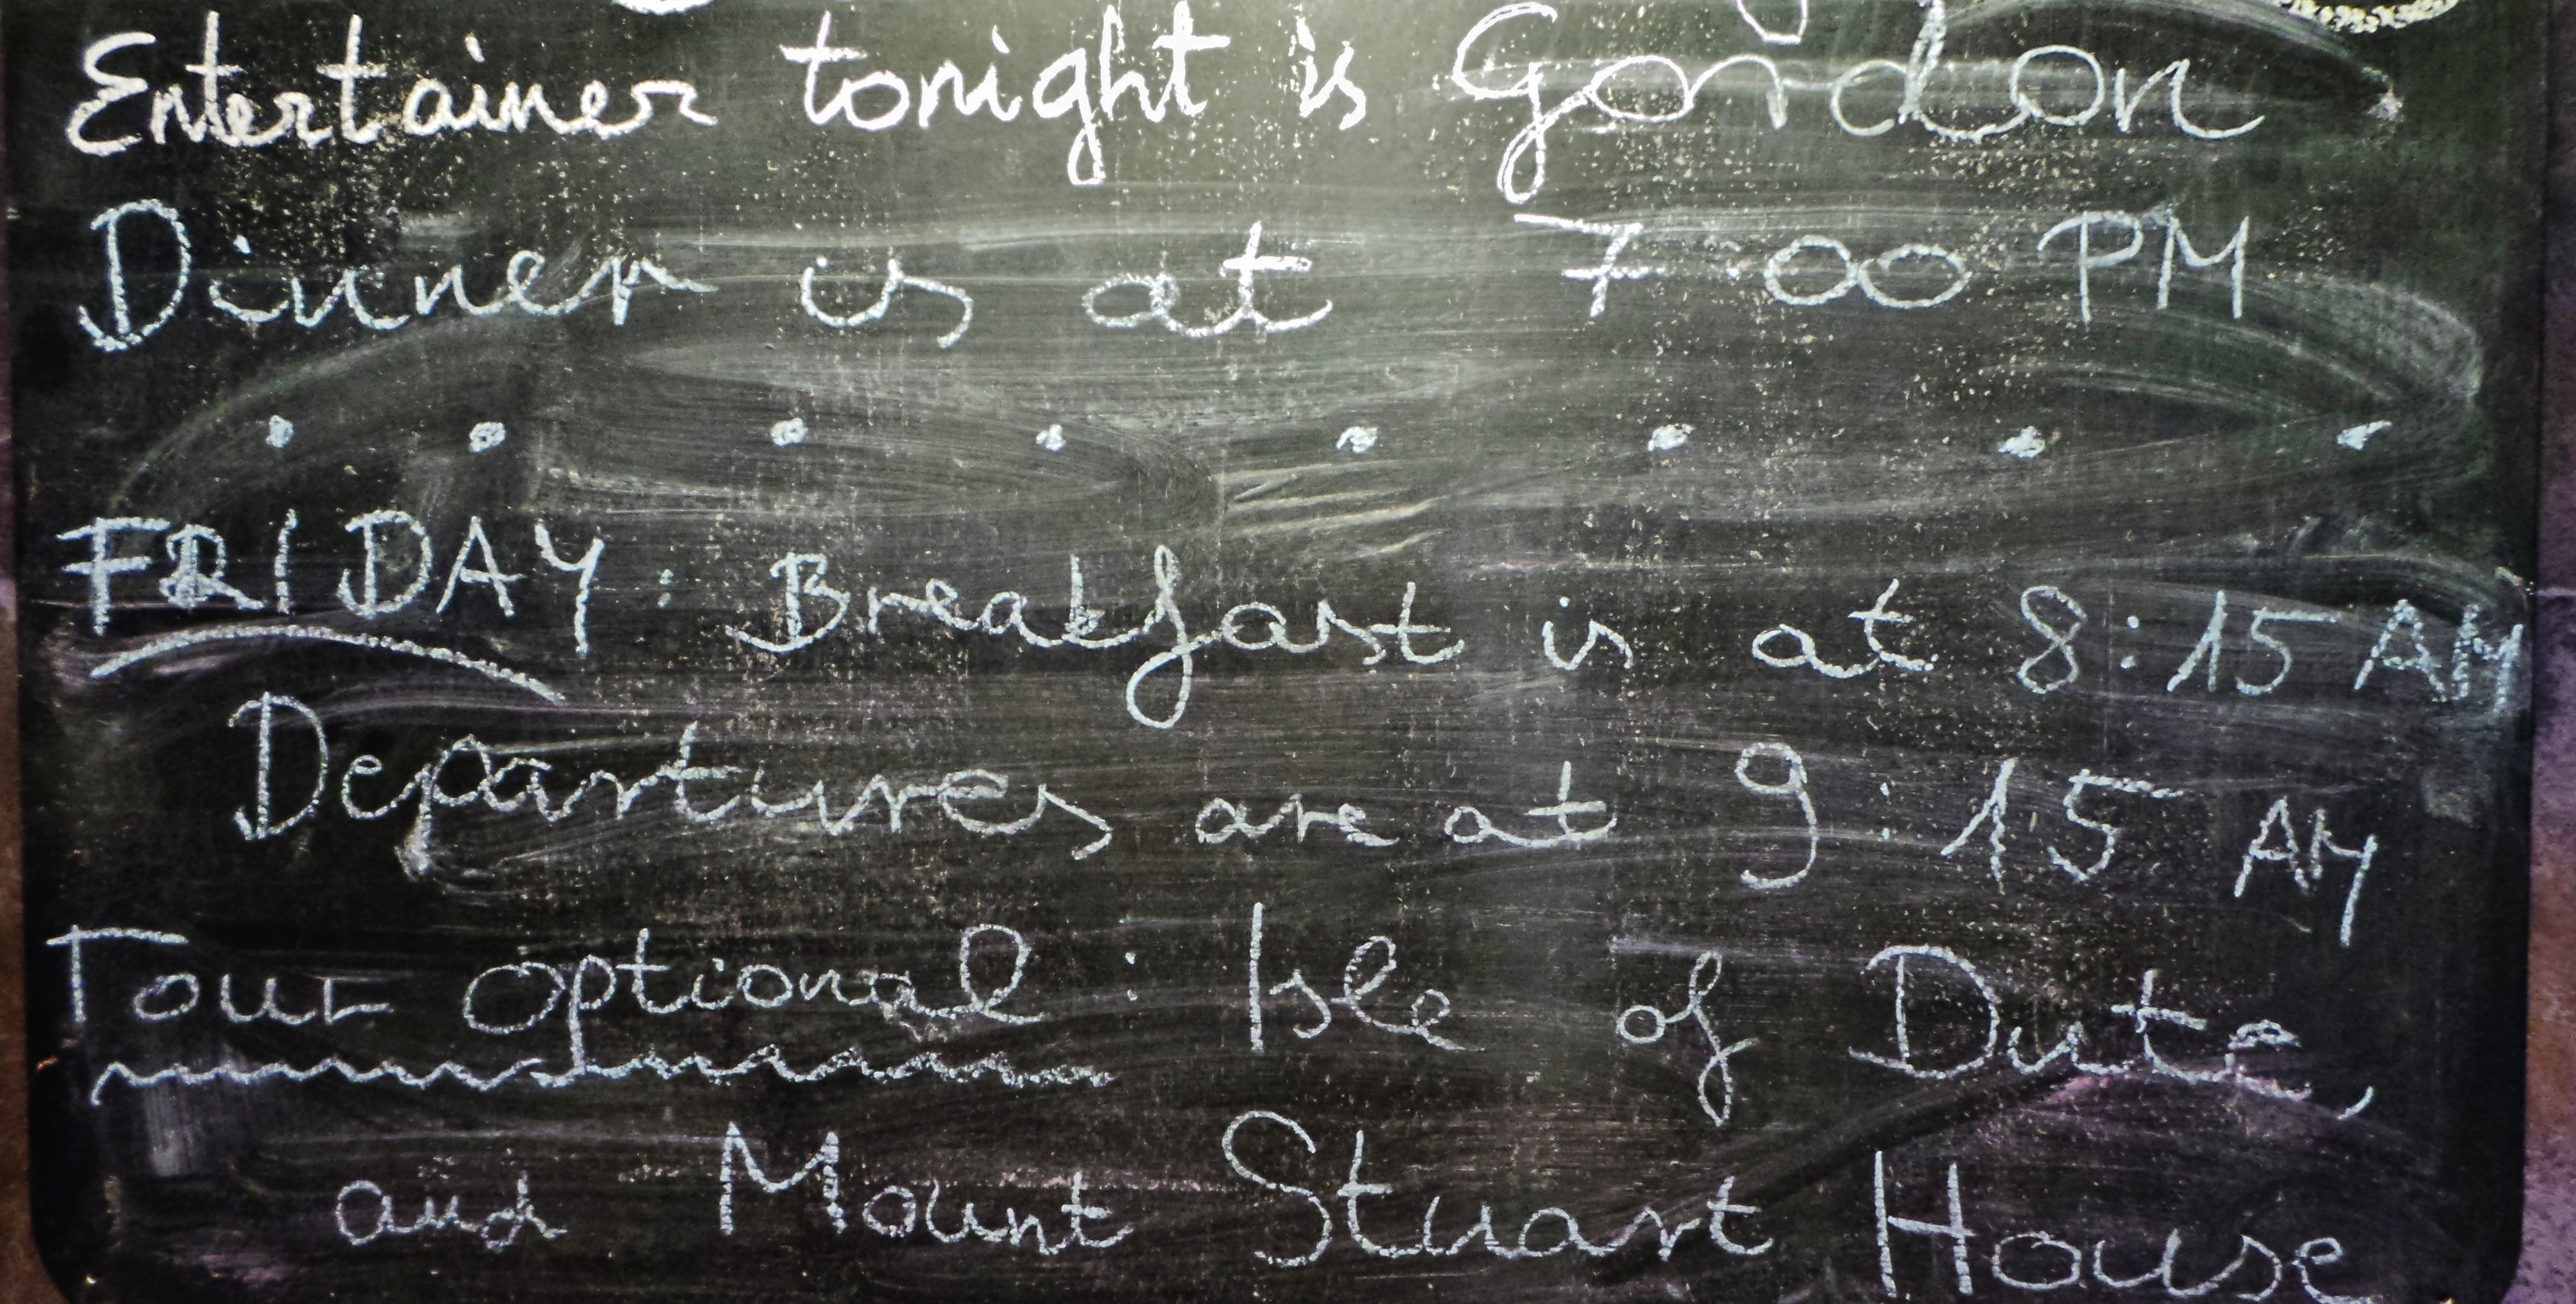 Entertainer tonight is Gordon
Dinner is at 7:00 PM
. . . . . . . .
FRIDAY: Breakfast is at 8:15 AM
Departures are at 9:15 AM
Tour optional: Isle of Dute,
and Mount Stuart House